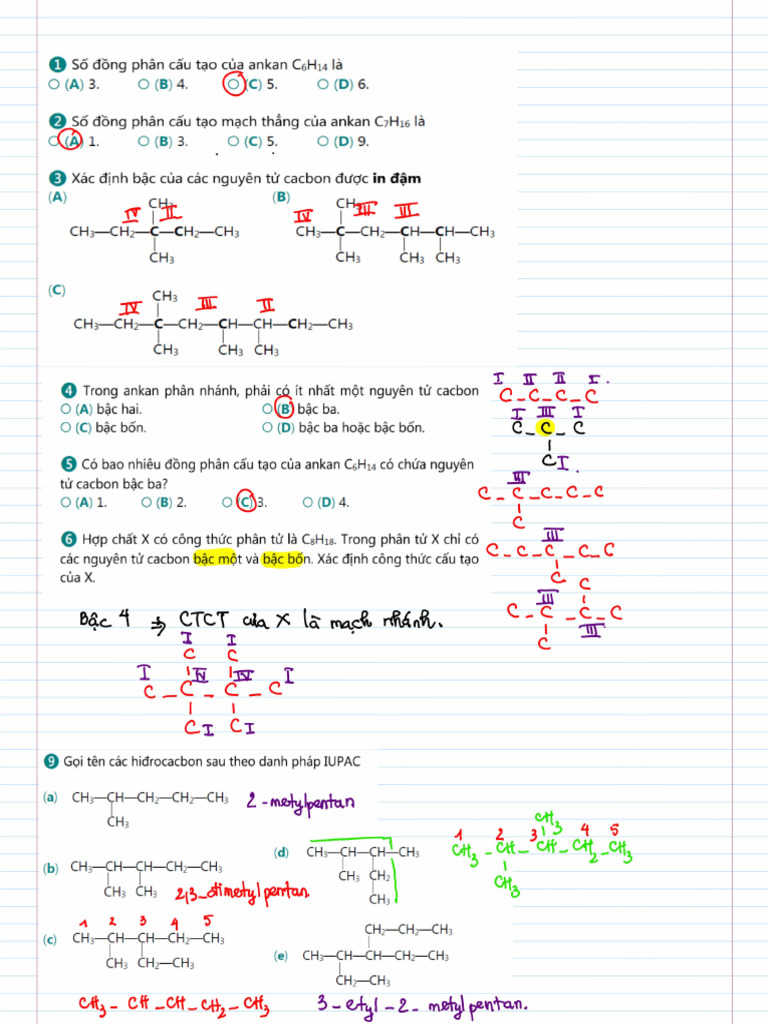 1 Số đồng phân cấu tạo của ankan C₆H₁₄ là
(A) 3. (B) 4. (C) 5. (D) 6.
2 Số đồng phân cấu tạo mạch thẳng của ankan C₇H₁₆ là
(A) 1. (B) 3. (C) 5. (D) 9.
3 Xác định bậc của các nguyên tử cacbon được in đậm
(A) (B)
CH₃ CH₃
IV II IV III III
CH₃—CH₂—C—CH₂—CH₃ CH₃—C—CH₂—CH—CH—CH₃
CH₃ CH₃ CH₃ CH₃
(C)
CH₃
IV III II
CH₃—CH₂—C—CH₂—CH—CH—CH₂—CH₃
CH₃ CH₃ CH₃
4 Trong ankan phân nhánh, phải có ít nhất một nguyên tử cacbon
(A) bậc hai. (B) bậc ba.
(C) bậc bốn. (D) bậc ba hoặc bậc bốn.
I II II I.
C – C – C – C
I III I
C – C – C
C I.
5 Có bao nhiêu đồng phân cấu tạo của ankan C₆H₁₄ có chứa nguyên
tử cacbon bậc ba?
(A) 1. (B) 2. (C) 3. (D) 4.
III
C – C – C – C – C
C
6 Hợp chất X có công thức phân tử là C₈H₁₈. Trong phân tử X chỉ có
các nguyên tử cacbon bậc một và bậc bốn. Xác định công thức cấu tạo
của X.
III
C – C – C – C – C
C
C
III
C – C – C – C
C III
Bậc 4 ⇒ CTCT của X là mạch nhánh.
I I
C C
I IV IV I
C – C – C – C
C I C I
9 Gọi tên các hiđrocacbon sau theo danh pháp IUPAC
(a) CH₃—CH—CH₂—CH₂—CH₃ 2 - metylpentan
CH₃
(b) CH₃—CH—CH—CH₂—CH₃
CH₃ CH₃ 2,3 – dimetyl pentan
(d) CH₃—CH—CH—CH₃
CH₃ CH₂
CH₃
CH₃
1 2 3 4 5
CH₃ – CH – CH – CH₂ – CH₃
CH₃
1 2 3 4 5
(c) CH₃—CH—CH—CH₂—CH₃
CH₃ CH₂—CH₃
CH₃ – CH – CH – CH₂ – CH₃
CH₂—CH₂—CH₃
(e) CH₃—CH—CH—CH₂—CH₃
CH₂—CH₃
3 – etyl – 2 – metylpentan.